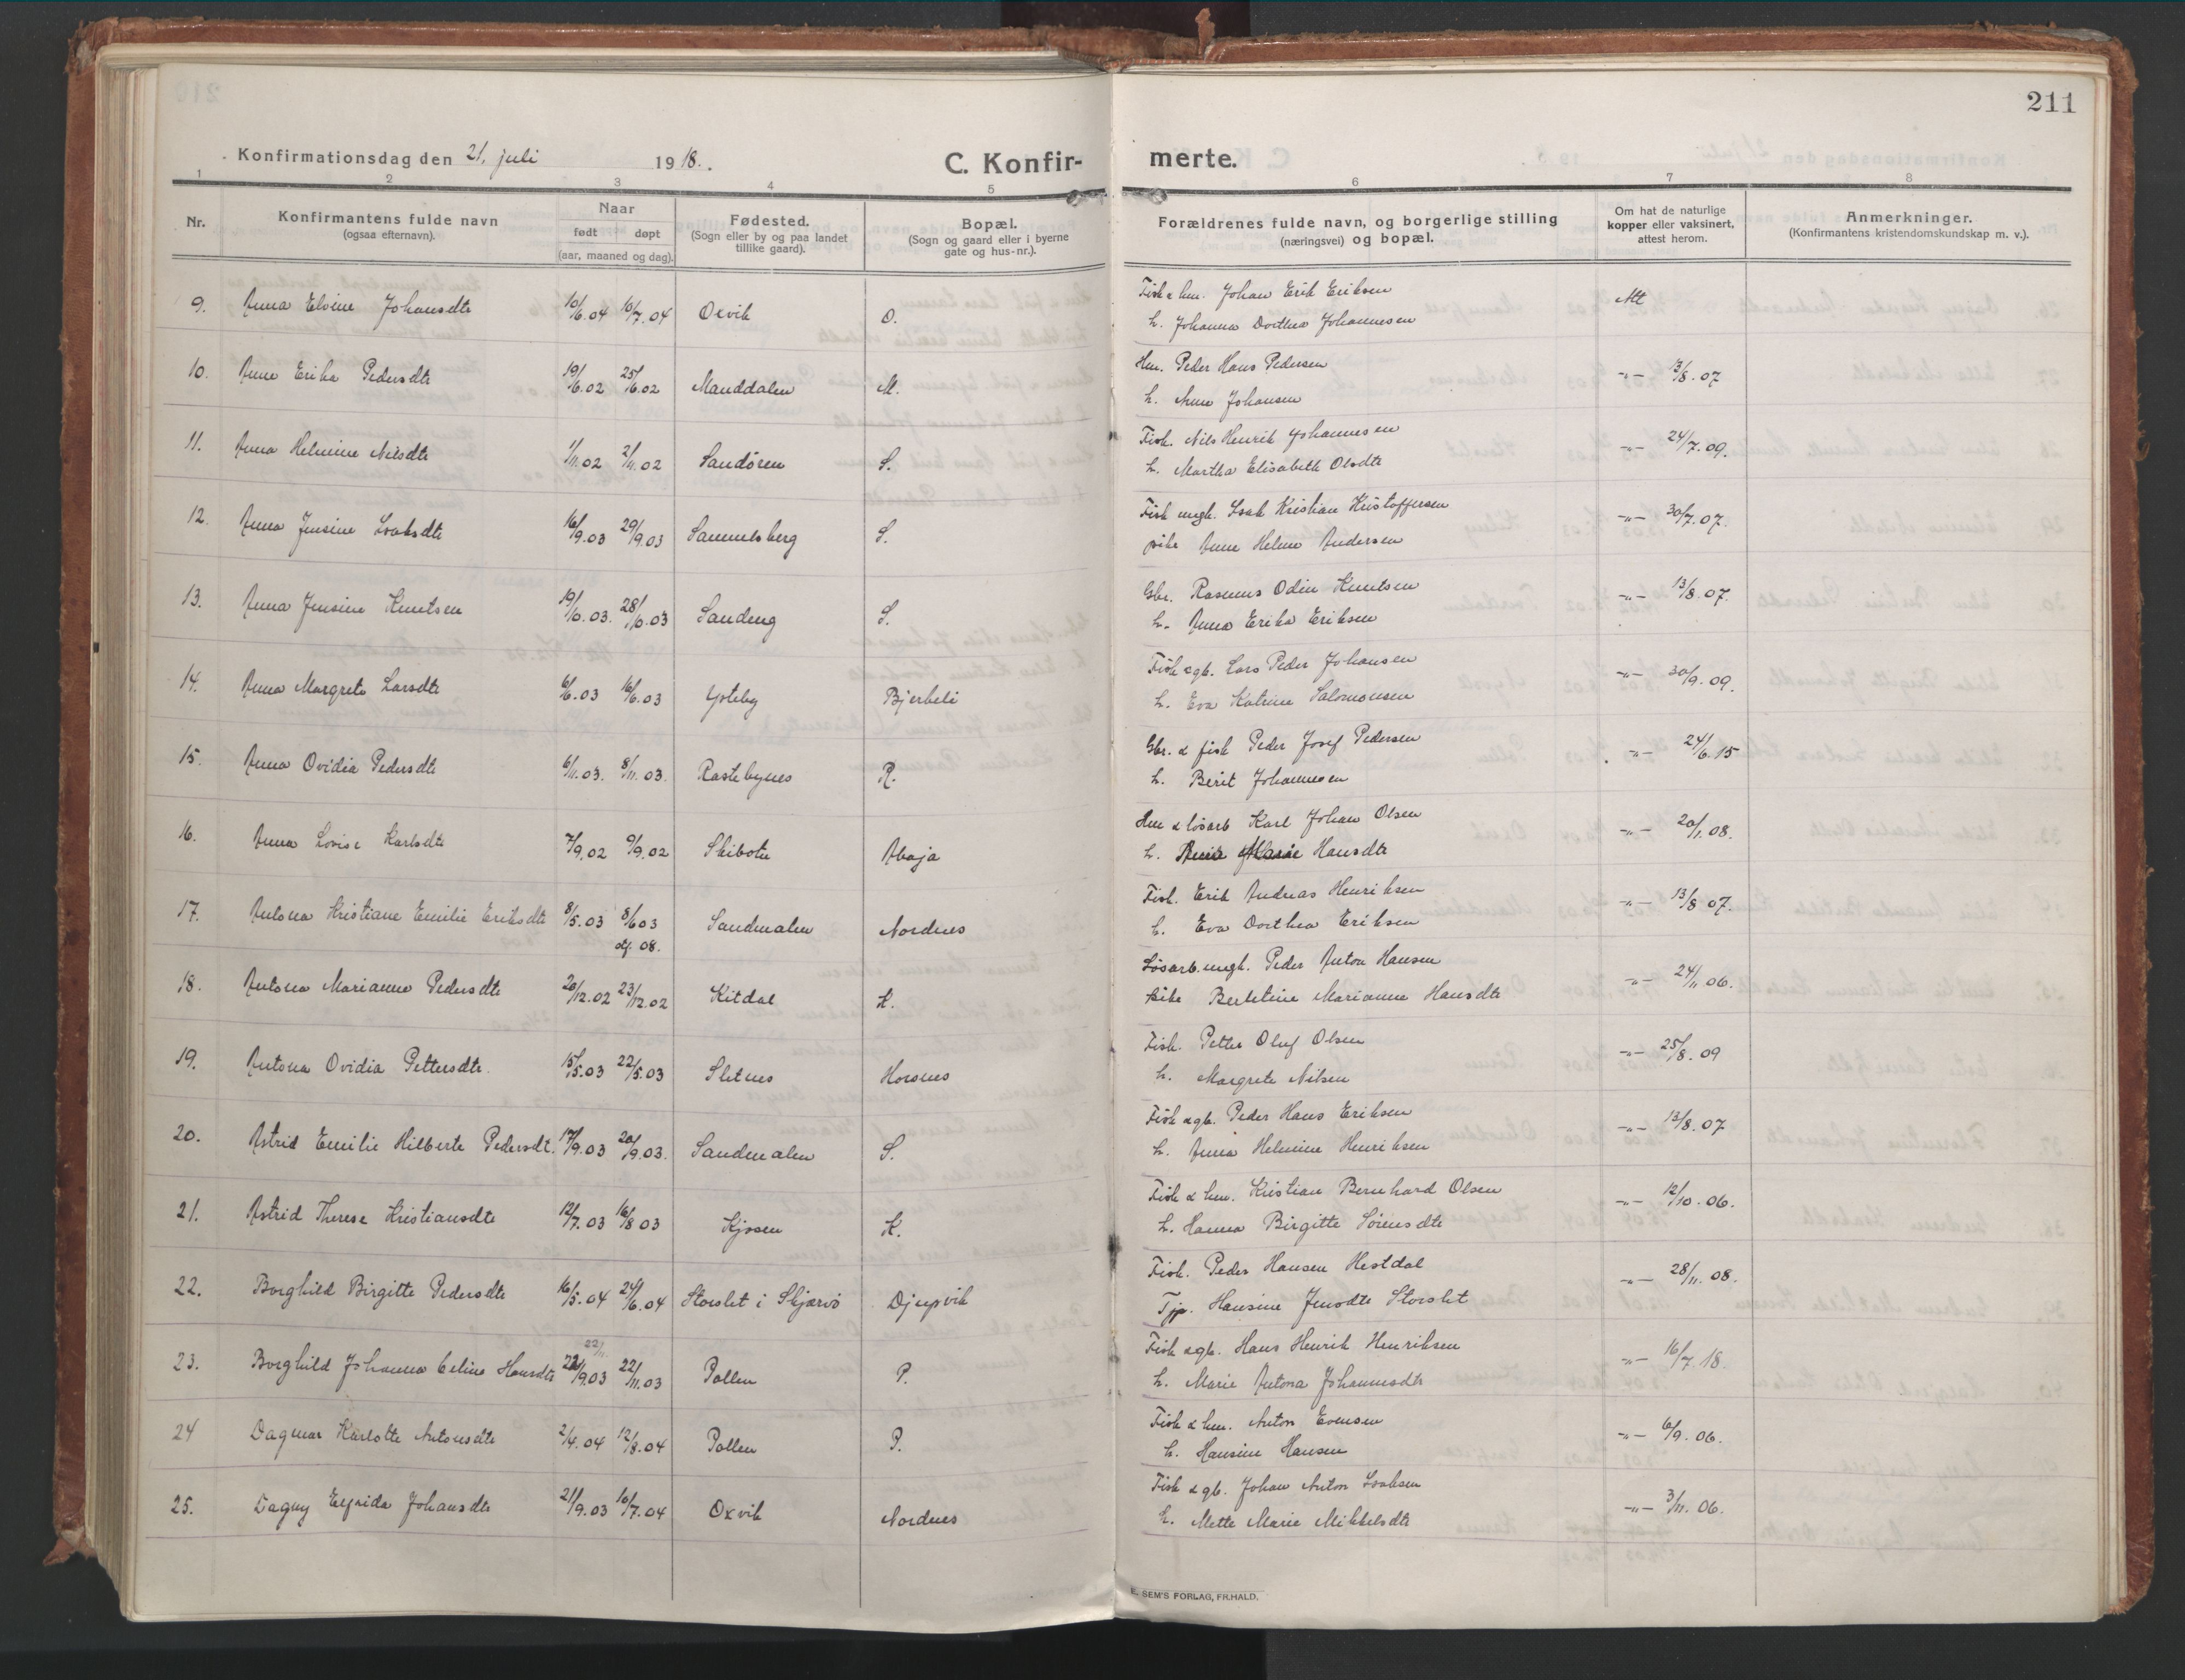 211
Konfirmationsdag den 21. juli 1918.
C. Konfirmerte.
1 2 3 4 5 6 7 8
Nr.
Konfirmantens fulde navn
(ogsaa efternavn).
Naar
født døpt
(aar, maaned og dag).
Fødested.
(Sogn eller by og paa landet
tillike gaard).
Bopæl.
(Sogn og gaard eller i byerne
gate og hus-nr.).
Forældrenes fulde navn, og borgerlige stilling
(næringsvei) og bopæl.
Om hat de naturlige
kopper eller vaksinert,
attest herom.
Anmerkninger.
(Konfirmantens kristendomskundskap m. v.).
9. Anna Elvine Johansdtr 10/6.04 10/7.04 Oxvik O. Fisk & hm. Johan Erik Eriksen Att
h. Johanna Dorthea Johannesen
10. Anne Erika Pedersdtr 19/6.02 25/6.02 Manddalen M. Hm. Peder Hans Pedersen -"- 13/8.07
h. Anne Johansen
11. Anna Helmine Nilsdtr 1/11.02 2/11.02 Sandøren S. Fisk. Nils Henrik Johannesen -"- 24/7.09.
h. Martha Elisabeth Olsdtr
12. Anna Jensine Isaksdtr 16/9.03 29/9.03 Samuelsberg S. Fisk ungk. Isak Kristian Kristoffersen -"- 30/7.07.
pike Anne Helene Andersen
13. Anna Jensine Knutsen 19/6.03. 28/6.03 Sandeng S. Gbr. Rasmus Odin Knutsen -"- 13/8.07.
h. Anna Erika Eriksen
14. Anna Margrete Larsdtr 6/6.03 16/6.03 Yteby Bjerkeli Fisk & gb. Lars Peder Johansen -"- 30/9.09.
h. Eva Katrine Salomonsen
15. Anna Ovidia Pedersdtr 6/11.03. 8/11.03. Rastebynes R. Gbr. & fisk Peder Josef Pedersen -"- 24/6.15
h. Berit Johannesen
16. Anna Lovise Karlsdtr 7/9.02 9/9.02 Skibotn Abaja Hm & løsarb Karl Johan Olsen -"- 20/1.08.
h. Marie Hansdtr
17. Antona Kristiane Emilie Eriksdtr 8/5.03 8/6.03 Sandmalen Nordnes Fisk. Erik Andreas Henriksen -"- 13/8 07.
08. h. Eva Dorthea Eriksen
18. Antona Marianna Pedersdtr 20/12.02 23/12.02 Kitdal K. Løsarb. ungk. Peder Anton Hansen -"- 24/11 06.
pike Berletine Marianne Hansdtr
19. Antona Ovidia Pettersdtr. 15/5.03 22/5.03 Sletnes Horsnes Fisk. Petter Oluf Olsen -"- 25/8.09
h. Margrete Nilsen
20. Astrid Emilie Hilberte Pedersdt. 17/9.03 20/9.03. Sandmalen S. Fisk & gb. Peder Hans Eriksen -"- 13/8.07
h. Anna Helmine Henriksen
21. Astrid Therese Kristiansdtr 12/7.03 16/8 03 Kjosen K. Fisk & hm. Kristian Bernhard Olsen -"- 12/10.06.
h. Hanna Birgitte Sørensdtr
22. Borghild Birgitte Pedersdtr 16/5.04 24/6.04 Storslet i Skjærvø Djupvik Fisk. Peder Hansen Hestdal -"- 28/11.08.
Tjp. Hansine Jensdtr Storslet
22/11.
23. Borghild Johanna Celina Hansdtr 22/9.03 22/11.03 Pollen P. Fisk & gb. Hans Henrik Henriksen -"- 16/7.18.
h. Marie Antona Johannesdtr
24 Dagmar Karlotte Antonsdtr 2/4.04 12/8.04 Pollen P. Fisk & hm. Anton Evensen -"- 6/9.06.
h. Hansine Hansen
25. Dagny Elfrida Johansdtr 21/9.03 10/7.04 Oxvik Nordnes Fisk & gb. Johan Anton Isaksen -"- 3/11.06.
h. Mette Marie Mikkelsdtr
E. SEM'S FORLAG, FR.HALD.